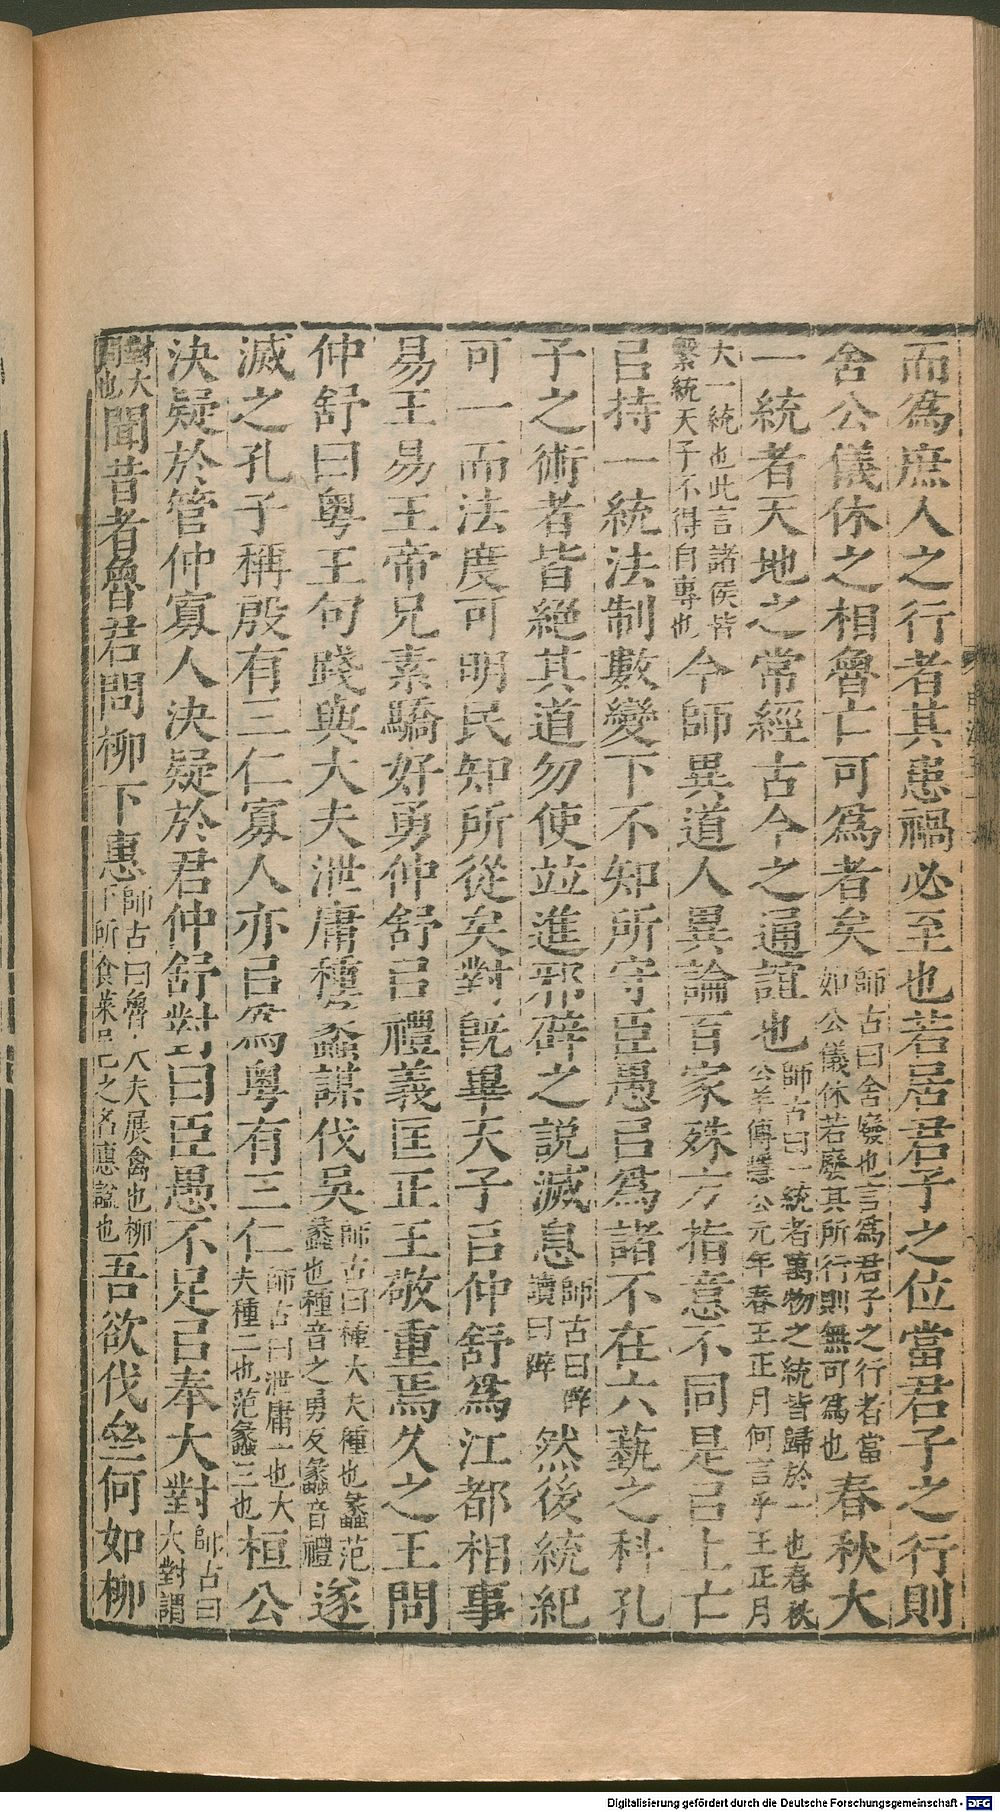 而爲庶人之行者其患禍必至也若居君子之位當君子之行則
舍公儀休之相魯亡可爲者矣師古曰舍廢也言爲君子之行者當如公儀休若廢其所行則無可爲也春秋大
一統者天地之常經古今之通誼也師古曰一統者萬物之統皆歸於一也春秋公羊傳隱公元年春王正月何言乎王正月
大一統也此言諸侯皆繫統天子不得自專也今師異道人異論百家殊方指意不同是㠯上亡
㠯持一統法制數變下不知所守臣愚㠯爲諸不在六藝之科孔
子之術者皆絶其道勿使竝進邪辟之說滅息師古曰辟讀曰僻然後統紀
可一而法度可明民知所從矣對旣畢天子㠯仲舒爲江都相事
易王易王帝兄素驕好勇仲舒㠯禮義匡正王敬重焉久之王問
仲舒曰粵王句踐與大夫泄庸種蠡謀伐吳師古曰種大夫種也蠡范蠡也種音之勇反蠡音禮遂
滅之孔子稱殷有三仁寡人亦㠯爲粵有三仁師古曰泄庸一也大夫種二也范蠡三也桓公
決疑於管仲寡人決疑於君仲舒對曰臣愚不足㠯奉大對師古曰大對謂
對大問也聞昔者魯君問柳下惠師古曰魯大夫展禽也柳下所食菜邑之名惠諡也吾欲伐㚁何如柳
Digitalisierung gefördert durch die Deutsche Forschungsgemeinschaft - DFG